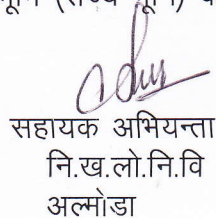 सहायक अभियन्ता
नि.ख.लो.नि.वि
अल्मोडा